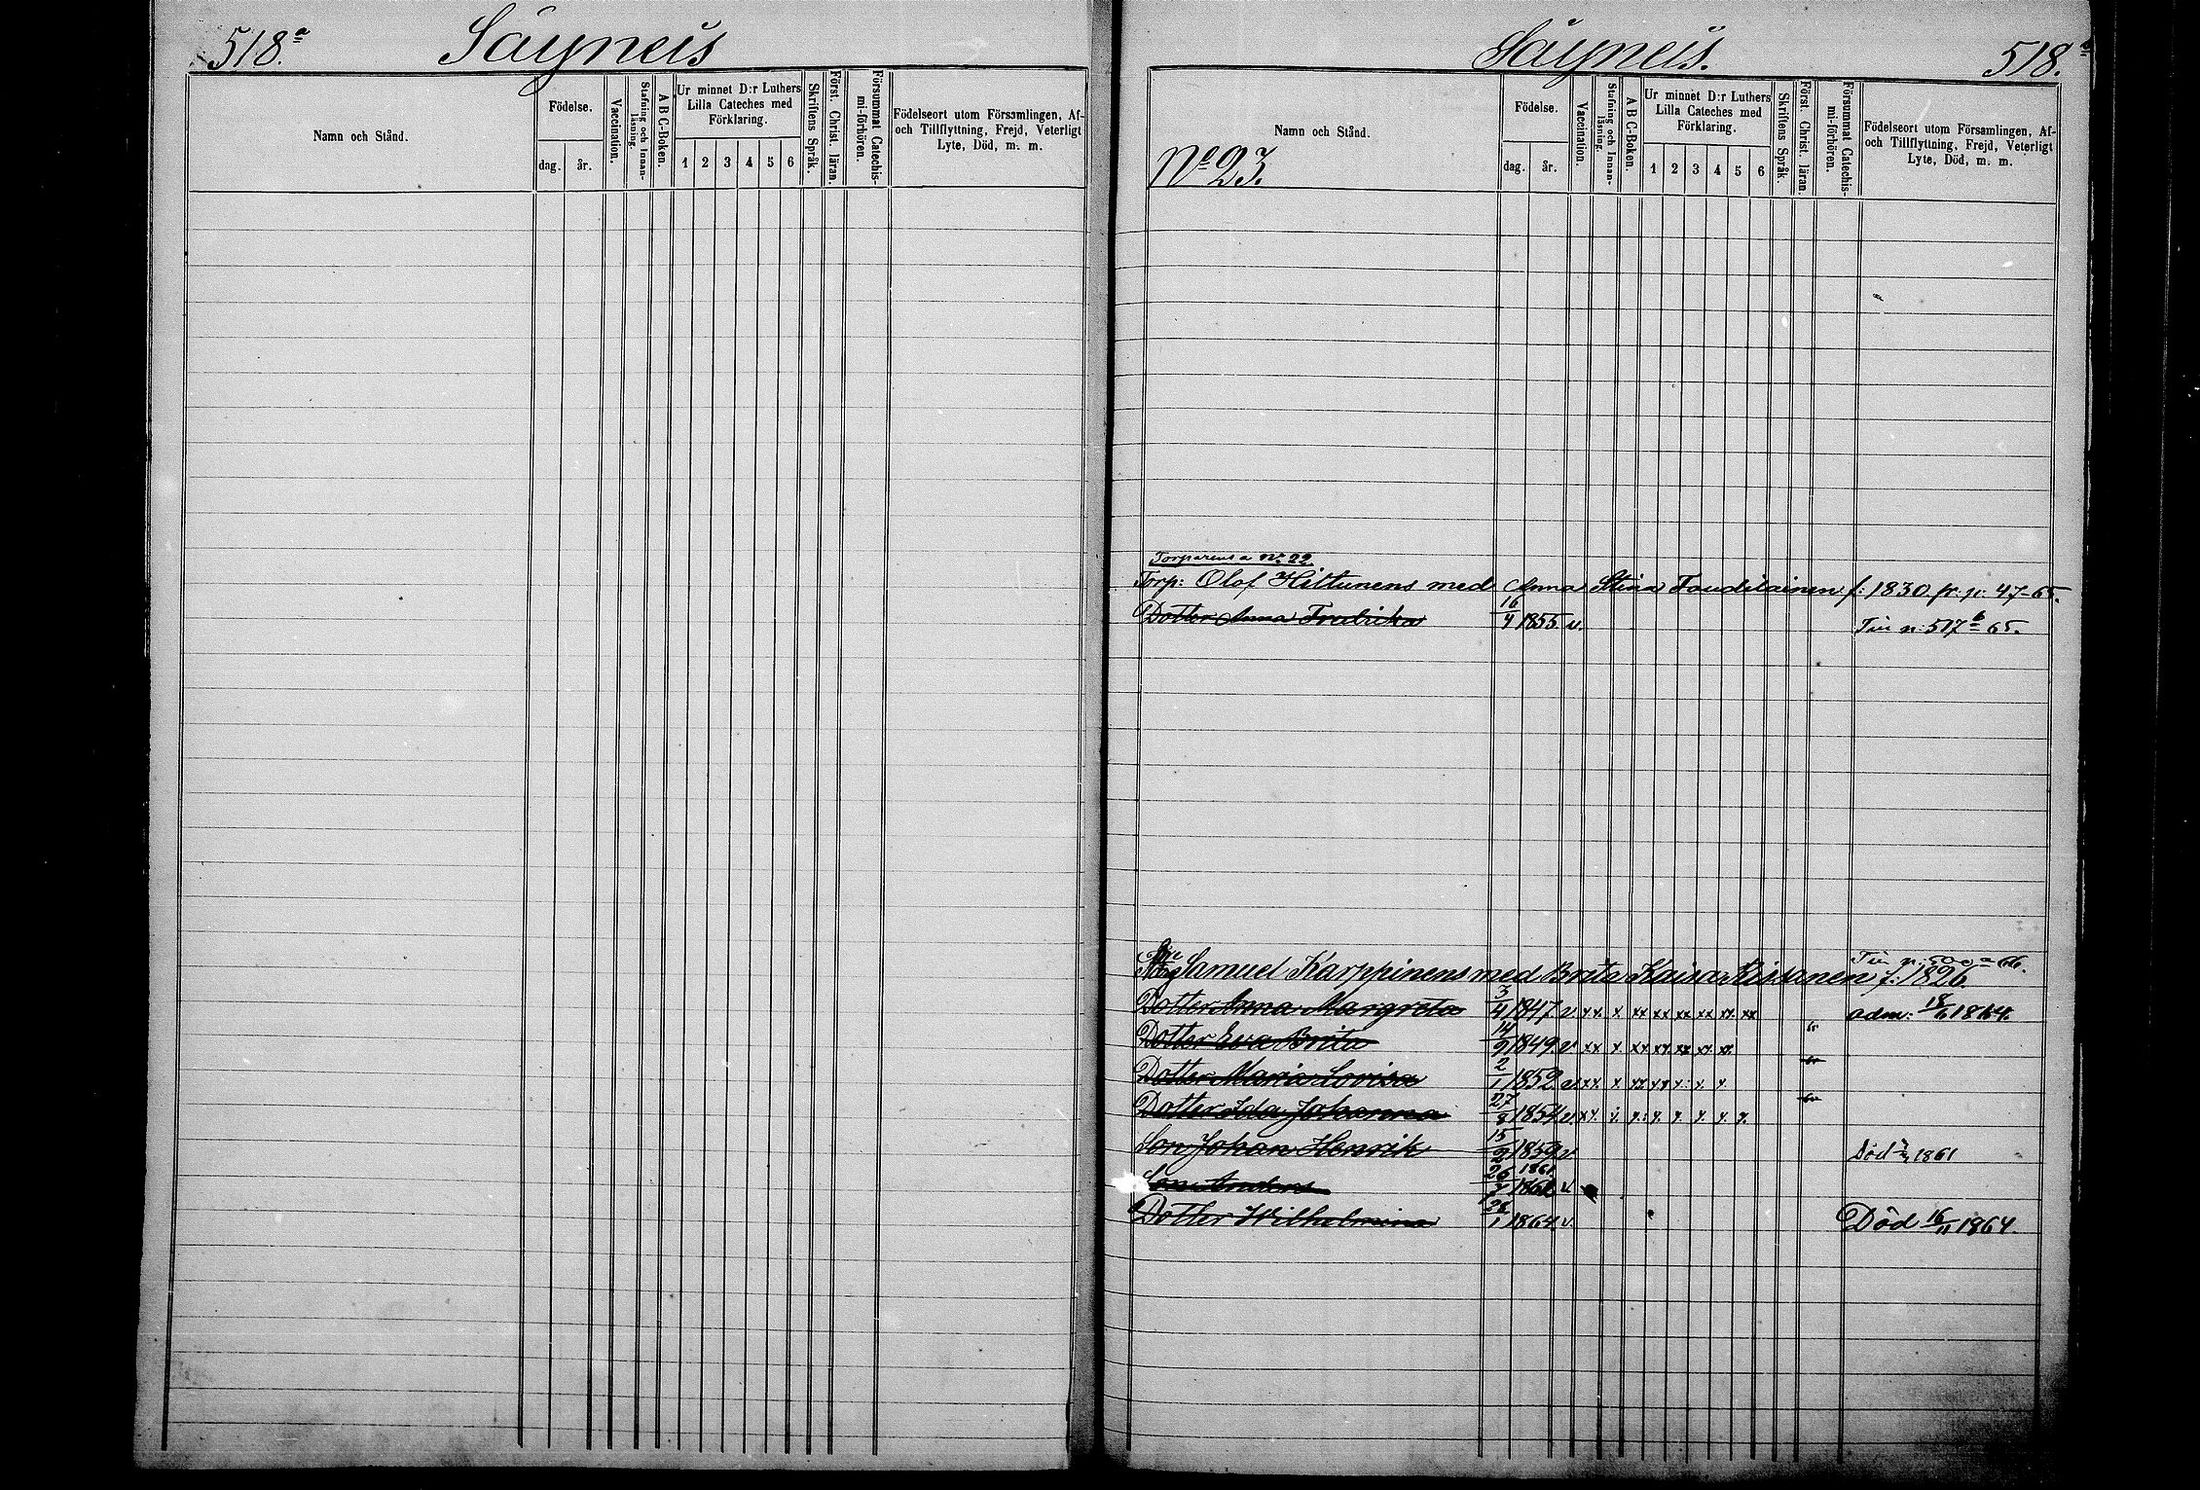 518.a Säyneis
Namn och Stånd.
Födelse.
dag. år.
Vaccination.
Stafning och Innanläsning.
A B C-Boken.
Ur minnet D:r Luthers
Lilla Cateches med
Förklaring.
1 2 3 4 5 6
Skriftens Språk.
Först. Christ. läran.
Försummat Catechismi-förhören.
Födelseort utom Församlingen, Af-
och Tillflyttning, Frejd, Veterligt
Lyte, Död, m. m.
Säyneis. 518.
Namn och Stånd.
No 23.
Födelse.
dag. år.
Vaccination.
Stafning och Innanläsning.
A B C-Boken.
Ur minnet D:r Luthers
Lilla Cateches med
Förklaring.
1 2 3 4 5 6
Skriftens Språk.
Först. Christ. läran.
Försummat Catechismi-förhören.
Födelseort utom Församlingen, Af-
och Tillflyttning, Frejd, Veterligt
Lyte, Död, m. m.
No 22
Torp: Olof Hiltunens med Anna Stina f: 1830. fr. p: 47-65.
Dotter Anna Fredrika 16/4 1855. v. 517 b 65.
Samuel Karppinens med Brita Kaisa f: 1826
Dotter Anna Margreta 3/4 1847 v xx x xx xx xx xx xx xx adm: 18/6 1864.
Dotter Eva Brita 14/9 1849 v xx x xx xx xx xx xx
Dotter Maria Lovisa 2/1 1852 v xx x xx xx x x x
Dotter Ida Johanna 27/8 1854 v. xx x x x x x x x
Son Johan Henrik 15/2 1859 v Död 1861
Son Anders 26 1861 v
Dotter Wilhelmina 28/1 1864 v. Död 16/11 1864.